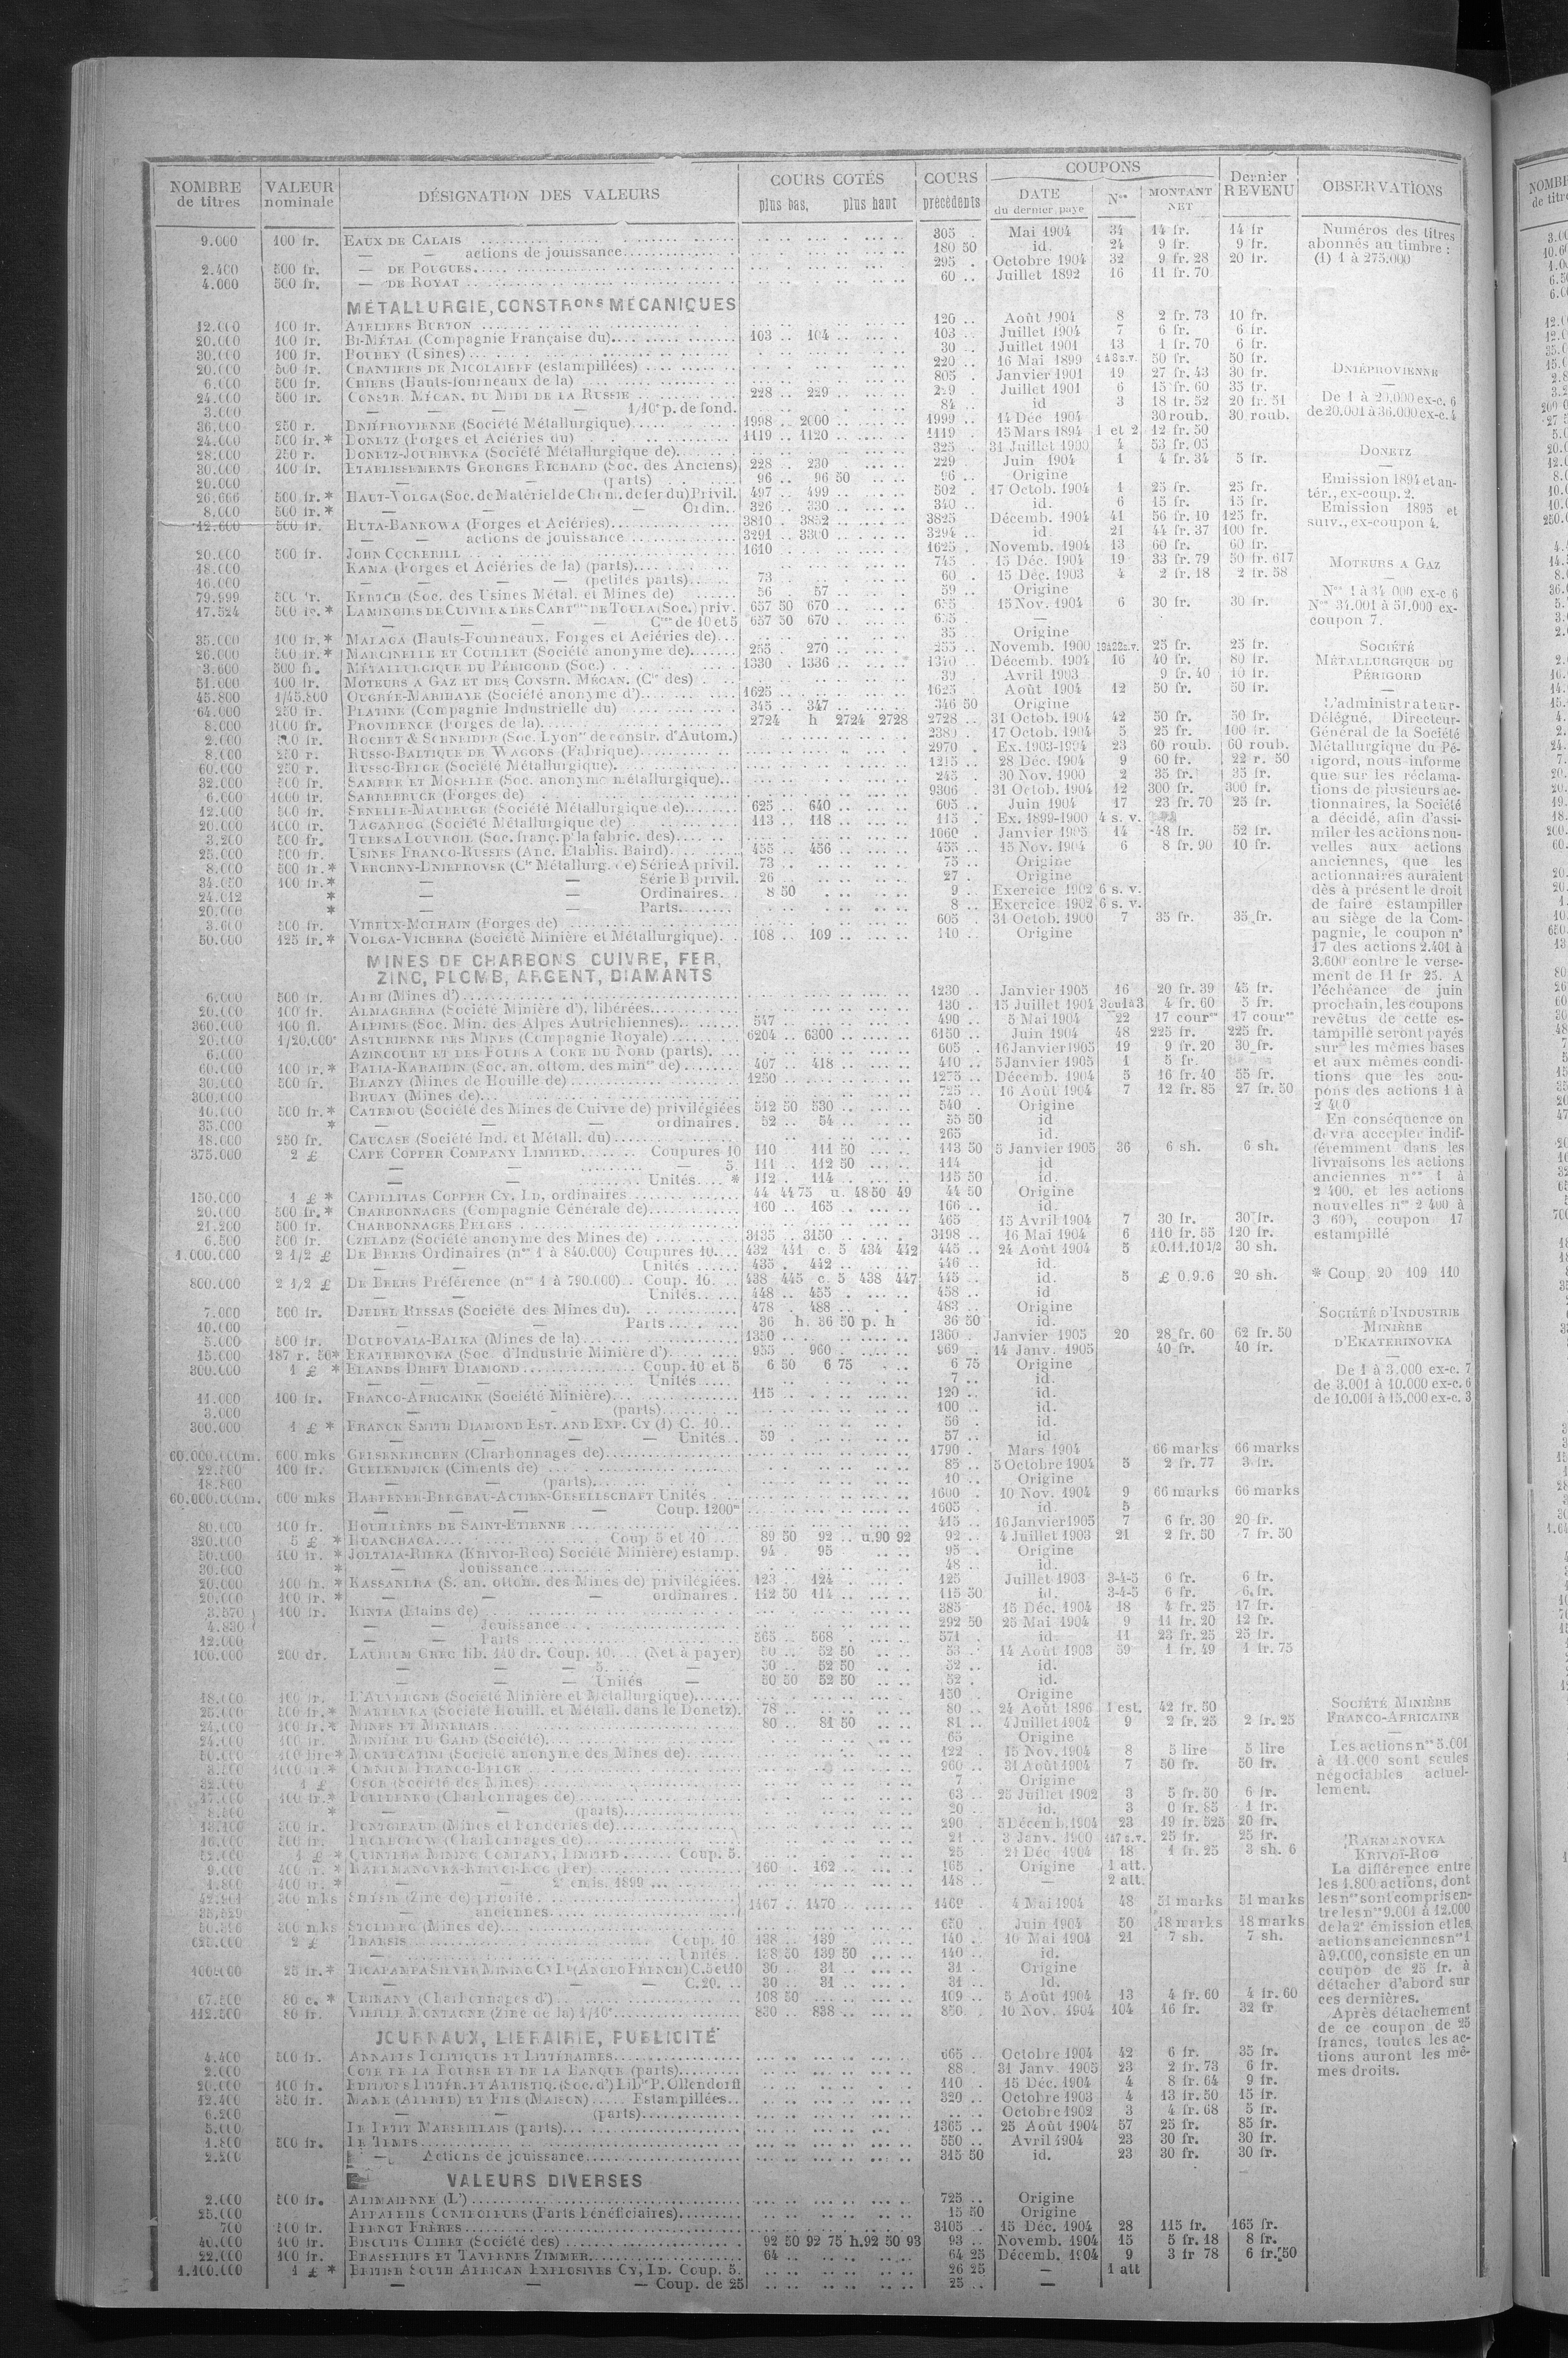 NOMBRE de titres | VALEUR nominale | DÉSIGNATION DES VALEURS | COURS COTÉS plus bas, plus haut | COURS précédents | COUPONS DATE du dernier payé | Nos | MONTANT NET | Dernier REVENU | OBSERVATIONS
9.000 100 fr. EAUX DE CALAIS 305 Mai 1904 34 14 fr. 14 fr
— — actions de jouissance 180 50 id. 24 9 fr. 9 fr.
2.400 500 fr. — DE POUGUES 295 Octobre 1904 32 9 fr. 28 20 fr.
4.000 500 fr. — DE ROYAT 60 Juillet 1892 16 11 fr. 70
MÉTALLURGIE, CONSTRons MÉCANIQUES
12.000 100 fr. ATELIERS BURTON 120 Août 1904 8 2 fr. 73 10 fr.
20.000 100 fr. BI-MÉTAL (Compagnie Française du) 103 104 103 Juillet 1904 7 6 fr. 6 fr.
30.000 100 fr. (Usines) 30 Juillet 1901 13 1 fr. 70 6 fr.
20.000 500 fr. CHANTIERS DE NICOLAIEFF (estampillées) 220 16 Mai 1899 50 fr. 50 fr.
6.000 500 fr. CHIERS (Hauts-fourneaux de la) 805 Janvier 1901 19 27 fr. 43 30 fr.
24.000 500 fr. CONSTR. MÉCAN. DU MIDI DE LA RUSSIE 228 229 229 Juillet 1901 6 15 fr. 60 35 fr.
3.000 — — — — 1/10e p. de fond. 84 id 3 18 fr. 52 20 fr. 51
36.000 250 r. DNIÉPROVIENNE (Société Métallurgique) 1998 2000 1999 14 Déc. 1904 30 roub. 30 roub.
24.000 500 fr.* DONETZ (Forges et Aciéries du) 1119 1120 1119 15 Mars 1894 1 et 2 12 fr. 50
28.000 250 r. DONETZ-JOURIEVKA (Société Métallurgique de) 325 31 Juillet 1900 4 53 fr. 05
30.000 100 fr. ETABLISSEMENTS GEORGES RICHARD (Soc. des Anciens) 228 230 229 Juin 1904 1 4 fr. 34 5 fr.
20.000 — — (parts) 96 96 50 96 Origine
26.666 500 fr.* HAUT-VOLGA (Soc. de Matériel de Chem. de fer du) Privil. 497 499 502 17 Octob. 1904 1 25 fr. 25 fr.
8.000 500 fr.* — — — Ordin. 326 330 340 id. 6 15 fr. 15 fr.
12.600 500 fr. HUTA-BANKOWA (Forges et Aciéries) 3810 3852 3825 Décemb. 1904 41 56 fr. 10 125 fr.
— — actions de jouissance 3291 3300 3294 id. 21 44 fr. 37 100 fr.
20.000 500 fr. JOHN COCKERILL 1610 1625 Novemb. 1904 13 60 fr. 60 fr.
18.000 KAMA (Forges et Aciéries de la) (parts) 745 15 Déc. 1904 19 33 fr. 79 50 fr. 617
16.000 — — — — (petites parts) 73 60 15 Déc. 1903 4 2 fr. 18 2 fr. 58
79.999 500 fr. KERTCH (Soc. des Usines Métal. et Mines de) 56 57 59 Origine
17.524 500 fr.* LAMINOIRS DE CUIVRE & DES CARTries DE TOULA (Soc.) priv. 657 50 670 655 15 Nov. 1904 6 30 fr. 30 fr.
— — — — Cres de 10 et 5 657 50 670 655 —
35.000 100 fr.* MALAGA (Hauts-Fourneaux, Forges et Aciéries de) 35 Origine
26.000 500 fr.* MARCINELLE ET COUILLET (Société anonyme de) 255 270 255 Novemb. 1900 25 fr. 25 fr.
3.600 500 fr. MÉTALLURGIQUE DU PÉRIGORD (Soc.) 1330 1336 1340 Décemb. 1904 16 40 fr. 80 fr.
51.000 100 fr. MOTEURS A GAZ ET DES CONSTR. MÉCAN. (Cie des) 39 Avril 1903 9 fr. 40 10 fr.
45.800 1/45.800 OUGRÉE-MARIHAYE (Société anonyme d') 1625 1625 Août 1904 12 50 fr. 50 fr.
64.000 250 fr. PLATINE (Compagnie Industrielle du) 345 347 346 50 Origine
8.000 1000 fr. PROVIDENCE (Forges de la) 2724 h 2724 2728 2728 31 Octob. 1904 42 50 fr. 50 fr.
2.000 500 fr. ROCHET & SCHNEIDER (Soc. Lyonse de constr. d'Autom.) 2380 17 Octob. 1904 5 25 fr. 100 fr.
8.000 250 r. RUSSO-BALTIQUE DE WAGONS (Fabrique) 2970 Ex. 1903-1904 23 60 roub. 60 roub.
60.000 250 r. RUSSO-BELGE (Société Métallurgique) 1215 28 Déc. 1904 9 60 fr. 22 r. 50
32.000 500 fr. SAMBRE ET MOSELLE (Soc. anonyme métallurgique) 245 30 Nov. 1900 2 35 fr. 35 fr.
6.000 1000 fr. SARREBRUCK (Forges de) 9306 31 Octob. 1904 12 300 fr. 300 fr.
12.000 500 fr. SENELLE-MAUBEUGE (Société Métallurgique de) 625 640 605 Juin 1904 17 23 fr. 70 25 fr.
20.000 1000 fr. TAGANROG (Société Métallurgique de) 113 118 115 Ex. 1899-1900 4 s. v.
3.200 500 fr. TUBES A LOUVROIL (Soc. franç. pr la fabric. des) 1060 Janvier 1905 14 48 fr. 52 fr.
25.000 500 fr. USINES FRANCO-RUSSES (Anc. Etablis. Baird) 455 456 455 15 Nov. 1904 6 8 fr. 90 10 fr.
8.000 500 fr.* VERCHNY-DNIEPROVSK (Cie Métallurg. de) Série A privil. 73 75 Origine
34.050 100 fr.* — — Série B privil. 26 27 Origine
24.012 * — — Ordinaires 8 50 9 Exercice 1902 6 s. v.
20.000 * — — Parts 8 Exercice 1902 6 s. v.
3.600 500 fr. VIREUX-MOLHAIN (Forges de) 605 31 Octob. 1900 7 35 fr. 35 fr.
50.000 125 fr.* VOLGA-VICHERA (Société Minière et Métallurgique) 108 109 110 Origine
MINES DE CHARBONS, CUIVRE, FER,
ZINC, PLOMB, ARGENT, DIAMANTS
6.000 500 fr. ALBI (Mines d') 1230 Janvier 1905 16 20 fr. 39 45 fr.
20.000 100 fr. ALMAGRERA (Société Minière d'), libérées 130 15 Juillet 1904 3 ou 1 à 3 4 fr. 60 5 fr.
360.000 100 fl. ALPINES (Soc. Min. des Alpes Autrichiennes) 547 490 5 Mai 1904 22 17 cournes 17 cournes
20.000 1/20.000e ASTURIENNE DES MINES (Compagnie Royale) 6204 6300 6150 Juin 1904 48 225 fr. 225 fr.
6.000 AZINCOURT ET DES FOURS A COKE DU NORD (parts) 605 16 Janvier 1905 19 9 fr. 20 30 fr.
60.000 100 fr.* BALIA-KARAIDIN (Soc. an. ottom. des mines de) 407 418 410 5 Janvier 1905 1 5 fr.
30.000 500 fr. BLANZY (Mines de Houille de) 1250 1275 Décemb. 1904 5 16 fr. 40 55 fr.
300.000 BRUAY (Mines de) 725 16 Août 1904 7 12 fr. 85 27 fr. 50
10.000 500 fr.* CATEMOU (Société des Mines de Cuivre de) privilégiées 512 50 530 540 Origine
35.000 * — — ordinaires 52 54 55 50 id
18.000 250 fr. CAUCASE (Société Ind. et Métall. du) 265 id.
375.000 2 £ CAPE COPPER COMPANY LIMITED Coupures 10 110 111 50 113 50 5 Janvier 1905 36 6 sh. 6 sh.
— — — 5 111 112 50 114 id
— — Unités * 112 114 115 50 id.
150.000 1 £ * CAPILLITAS COPPER CY. LD, ordinaires 44 44 75 u. 48 50 49 44 50 Origine
20.000 500 fr.* CHARBONNAGES (Compagnie Générale de) 160 165 166 id.
21.200 500 fr. CHARBONNAGES BELGES 465 15 Avril 1904 7 30 fr. 30 fr.
6.500 500 fr. CZELADZ (Société anonyme des Mines de) 3135 3150 3198 16 Mai 1904 6 110 fr. 55 120 fr.
1.000.000 2 1/2 £ DE BEERS Ordinaires (nos 1 à 840.000) Coupures 10 432 441 c. 5 434 442 445 24 Août 1904 5 £0.11.10 1/2 30 sh.
— — Unités 435 442 446 id.
800.000 2 1/2 £ DE BEERS Préférence (nos 1 à 790.000) Coup. 10 438 445 c. 5 438 447 445 id. 5 £ 0.9.6 20 sh.
— — Unités 448 455 458 id
7.000 500 fr. DJEBEL RESSAS (Société des Mines du) 478 488 483 Origine
10.000 — — Parts 36 h. 36 50 p. h 36 50 id.
5.000 500 fr. DOUBOVAIA-BALKA (Mines de la) 1350 1360 Janvier 1905 20 28 fr. 60 62 fr. 50
15.000 187 r. 50* EKATERINOVKA (Soc. d'Industrie Minière d') 955 960 969 14 Janv. 1905 40 fr. 40 fr.
300.000 1 £ * ELANDS DRIFT DIAMOND Coup. 10 et 5 6 50 6 75 6 75 Origine
— — Unités 7 id.
11.000 100 fr. FRANCO-AFRICAINE (Société Minière) 115 120 id.
3.000 — — (parts) 100 id.
300.000 1 £ * FRANCK SMITH DIAMOND EST. AND EXP. CY (1) C. 10 56 id
— — — Unités 59 57 id
60.000.000m. 600 mks GELSENKIRCHEN (Charbonnages de) 1790 Mars 1904 66 marks 66 marks
22.500 100 fr. GUELENDJICK (Ciments de) 85 5 Octobre 1904 5 2 fr. 77 3 fr.
18.800 — (parts) 10 Origine
60.000.000m. 600 mks HARPENER-BERGBAU-ACTIEN-GESELLSCHAFT Unités 1600 10 Nov. 1904 9 66 marks 66 marks
— — — — Coup. 1200m 1605 id. 5
80.000 100 fr. HOUILLÈRES DE SAINT-ETIENNE 415 16 Janvier 1905 7 6 fr. 30 20 fr.
320.000 5 £ * HUANCHACA Coup 5 et 10 89 50 92 u. 90 92 92 4 Juillet 1903 21 2 fr. 50 7 fr. 50
50.000 100 fr.* JOLTAIA-RIEKA (KRIVOI-ROG) Société Minière) estamp. 94 95 95 Origine
30.000 * — — Jouissance 48 id.
20.000 100 fr.* KASSANDRA (S. an. ottom. des Mines de) privilégiées 123 124 125 Juillet 1903 3-4-5 6 fr. 6 fr.
20.000 100 fr.* — — ordinaires 112 50 114 115 50 id. 3-4-5 6 fr. 6 fr.
3.570 100 fr. KINTA (Etains de) 385 15 Déc. 1904 18 4 fr. 25 17 fr.
4.830 — — Jouissance 292 50 25 Mai 1904 9 11 fr. 20 12 fr.
12.000 — — Parts 565 568 571 id. 11 23 fr. 25 25 fr.
100.000 200 dr. LAURIUM GREC lib. 140 dr. Coup. 10 (Net à payer) 50 52 50 53 14 Août 1903 59 1 fr. 49 1 fr. 75
— — — 5 — 50 52 50 52 id.
— — — Unités — 50 50 52 50 52 id.
18.000 100 fr. L'AUVERGNE (Société Minière et Métallurgique) 150 Origine
25.000 500 fr.* MAKEEVKA (Société Houill. et Métall. dans le Donetz) 78 80 24 Août 1896 1 est. 42 fr. 50
24.000 100 fr.* MINES ET MINERAIS 80 81 50 81 4 Juillet 1904 9 2 fr. 25 2 fr. 25
24.000 100 fr. MINIÈRE DU GARD (Société) 65 Origine
50.000 100 lire* MONTECATINI (Société anonyme des Mines de) 122 15 Nov. 1904 8 5 lire 5 lire
1000 fr.* OMNIUM FRANCO-BELGE 960 31 Août 1904 7 50 fr. 50 fr.
32.000 1 £ OSOR (Société des Mines) 7 Origine
17.000 100 fr.* (Charbonnages de) 63 25 Juillet 1902 3 5 fr. 50 6 fr.
8.500 * — — (parts) 20 id. 3 0 fr. 85 1 fr.
500 fr. PONTGIBAUD (Mines et Fonderies de) 290 5 Décemb. 1904 23 19 fr. 525 20 fr.
16.000 500 fr. (Charbonnages de) 21 3 Janv. 1900 25 fr. 25 fr.
1 £ * MINING COMPANY, LIMITED Coup. 5 25 21 Déc 1904 18 1 fr. 25 3 sh. 6
9.000 400 fr.* RAKHMANOVKA-KRIVOI-ROG (Fer) 160 162 165 Origine 1 att.
1.800 400 fr.* — — 2e émis. 1899 148 — 2 att.
300 mks SILÉSIE (Zinc de) priorité 1467 1470 1469 4 Mai 1904 48 51 marks 51 marks
— anciennes
300 mks STOLBERG (Mines de) 650 Juin 1904 50 18 marks 18 marks
625.000 2 £ THARSIS Coup. 10 138 139 140 10 Mai 1904 21 7 sh. 7 sh.
— Unités 138 50 139 50 140 id.
25 fr.* TICAPAMPA SILVER MINING CY Ld (ANGLO FRENCH) C. 5 et 10 30 31 31 Origine
— — — C. 20 30 31 31 id.
67.500 80 c. * URIKANY (Charbonnages d') 108 50 109 5 Août 1904 13 4 fr. 60 4 fr. 60
112.500 80 fr. VIEILLE MONTAGNE (Zinc de la) 1/10e 830 838 850 10 Nov. 1904 104 16 fr. 32 fr
JOURNAUX, LIBRAIRIE, PUBLICITÉ
4.400 500 fr. ANNALES POLITIQUES ET LITTÉRAIRES 665 Octobre 1904 42 6 fr. 35 fr.
2.000 COTE DE LA BOURSE ET DE LA BANQUE (parts) 88 31 Janv. 1905 23 2 fr. 73 6 fr.
20.000 100 fr. EDITIONS LITTÉR. ET ARTISTIQ. (Soc. d') Librie P. Ollendorff 110 15 Déc. 1904 4 8 fr. 64 9 fr.
12.400 350 fr. MAME (ALFRED) ET FILS (MAISON) Estampillées 320 Octobre 1903 4 13 fr. 50 15 fr.
6.200 — — (parts) Octobre 1902 3 4 fr. 68 5 fr.
5.000 LE PETIT MARSEILLAIS (parts) 1365 25 Août 1904 57 25 fr. 85 fr.
1.800 500 fr. LE TEMPS 550 Avril 1904 23 30 fr. 30 fr.
2.200 — Actions de jouissance 315 50 id. 23 30 fr. 30 fr.
VALEURS DIVERSES
2.000 500 fr. ALIMAIENNE (L') 725 Origine
25.000 APPAREILS CONTROLEURS (Parts bénéficiaires) 15 50 Origine
700 500 fr. BERNOT FRÈRES 3105 15 Déc. 1904 28 115 fr. 165 fr.
40.000 100 fr. BISCUITS OLIBET (Société des) 92 50 92 75 h. 92 50 93 93 Novemb. 1904 15 5 fr. 18 8 fr.
22.000 100 fr. BRASSERIES ET TAVERNES ZIMMER 64 64 25 Décemb. 1904 9 3 fr 78 6 fr. 50
1.100.000 1 £ * BRITISH SOUTH AFRICAN EXPLOSIVES CY, LD. Coup. 5 26 25 — 1 att
— — — Coup. de 25 25 —
Numéros des titres
abonnés au timbre :
(1) 1 à 275.000
DNIÉPROVIENNE
De 1 à 20.000 ex-c. 6
de 20.001 à 36.000 ex-c. 4
DONETZ
Emission 1894 et an-
tér., ex-coup. 2.
Emission 1895 et
suiv., ex-coupon 4.
MOTEURS A GAZ
Nos 1 à 34 000 ex-c 6
Nos 34.001 à 51.000 ex-
coupon 7.
SOCIÉTÉ
MÉTALLURGIQUE DU
PÉRIGORD
L'administrateur-
Délégué, Directeur-
Général de la Société
Métallurgique du Pé-
rigord, nous informe
que sur les réclama-
tions de plusieurs ac-
tionnaires, la Société
a décidé, afin d'assi-
miler les actions nou-
velles aux actions
anciennes, que les
actionnaires auraient
dès à présent le droit
de faire estampiller
au siège de la Com-
pagnie, le coupon n°
17 des actions 2.401 à
3.600 contre le verse-
ment de 11 fr 25. A
l'échéance de juin
prochain, les coupons
revêtus de cette es-
tampille seront payés
sur les mêmes bases
et aux mêmes condi-
tions que les cou-
pons des actions 1 à
2 400
En conséquence on
devra accepter indif-
féremment dans les
livraisons les actions
anciennes nos 1 à
2 400, et les actions
nouvelles nos 2 400 à
3 600, coupon 17
estampillé
* Coup 20 109 110
SOCIÉTÉ D'INDUSTRIE
MINIÈRE
D'EKATERINOVKA
De 1 à 3.000 ex-c. 7
de 3.001 à 10.000 ex-c. 6
de 10.001 à 15.000 ex-c. 3
SOCIÉTÉ MINIÈRE
FRANCO-AFRICAINE
Les actions nos 5.001
à 11.000 sont seules
négociables actuel-
lement.
RAKMANOVKA
KRIVOÏ-ROG
La différence entre
les 1.800 actions, dont
les nos sont compris en-
tre les nos 9.001 à 12.000
de la 2e émission et les
actions anciennes nos 1
à 9.000, consiste en un
coupon de 25 fr. à
détacher d'abord sur
ces dernières.
Après détachement
de ce coupon de 25
francs, toutes les ac-
tions auront les mê-
mes droits.